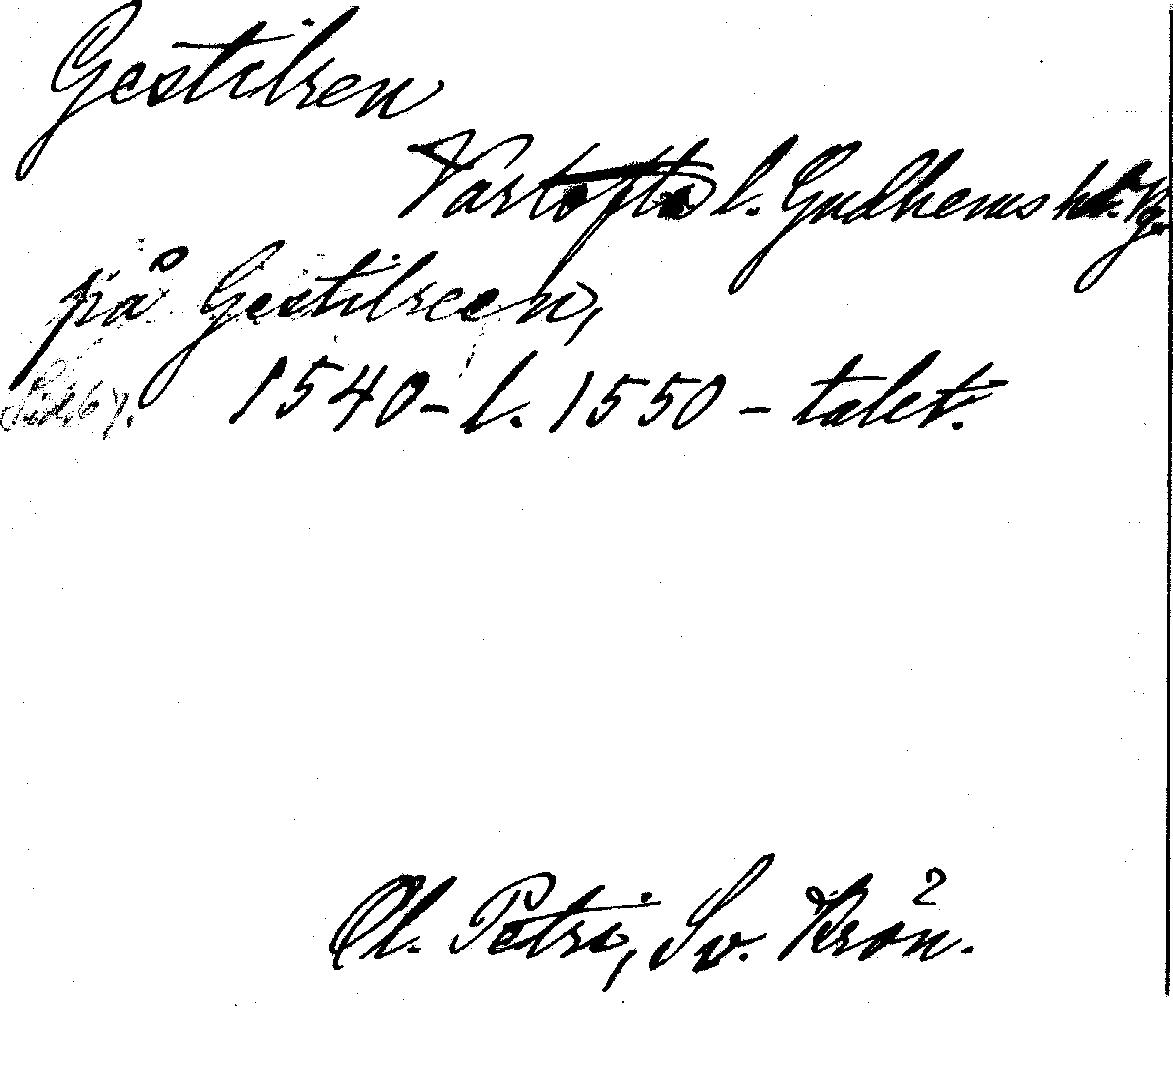 Gestilren
Vartofta l. Gudhems hd. Vg.
på Gestilreen,
Sid. 67. 1540- l. 1550-talet.
Ol. Petri, Sv. Krön.²